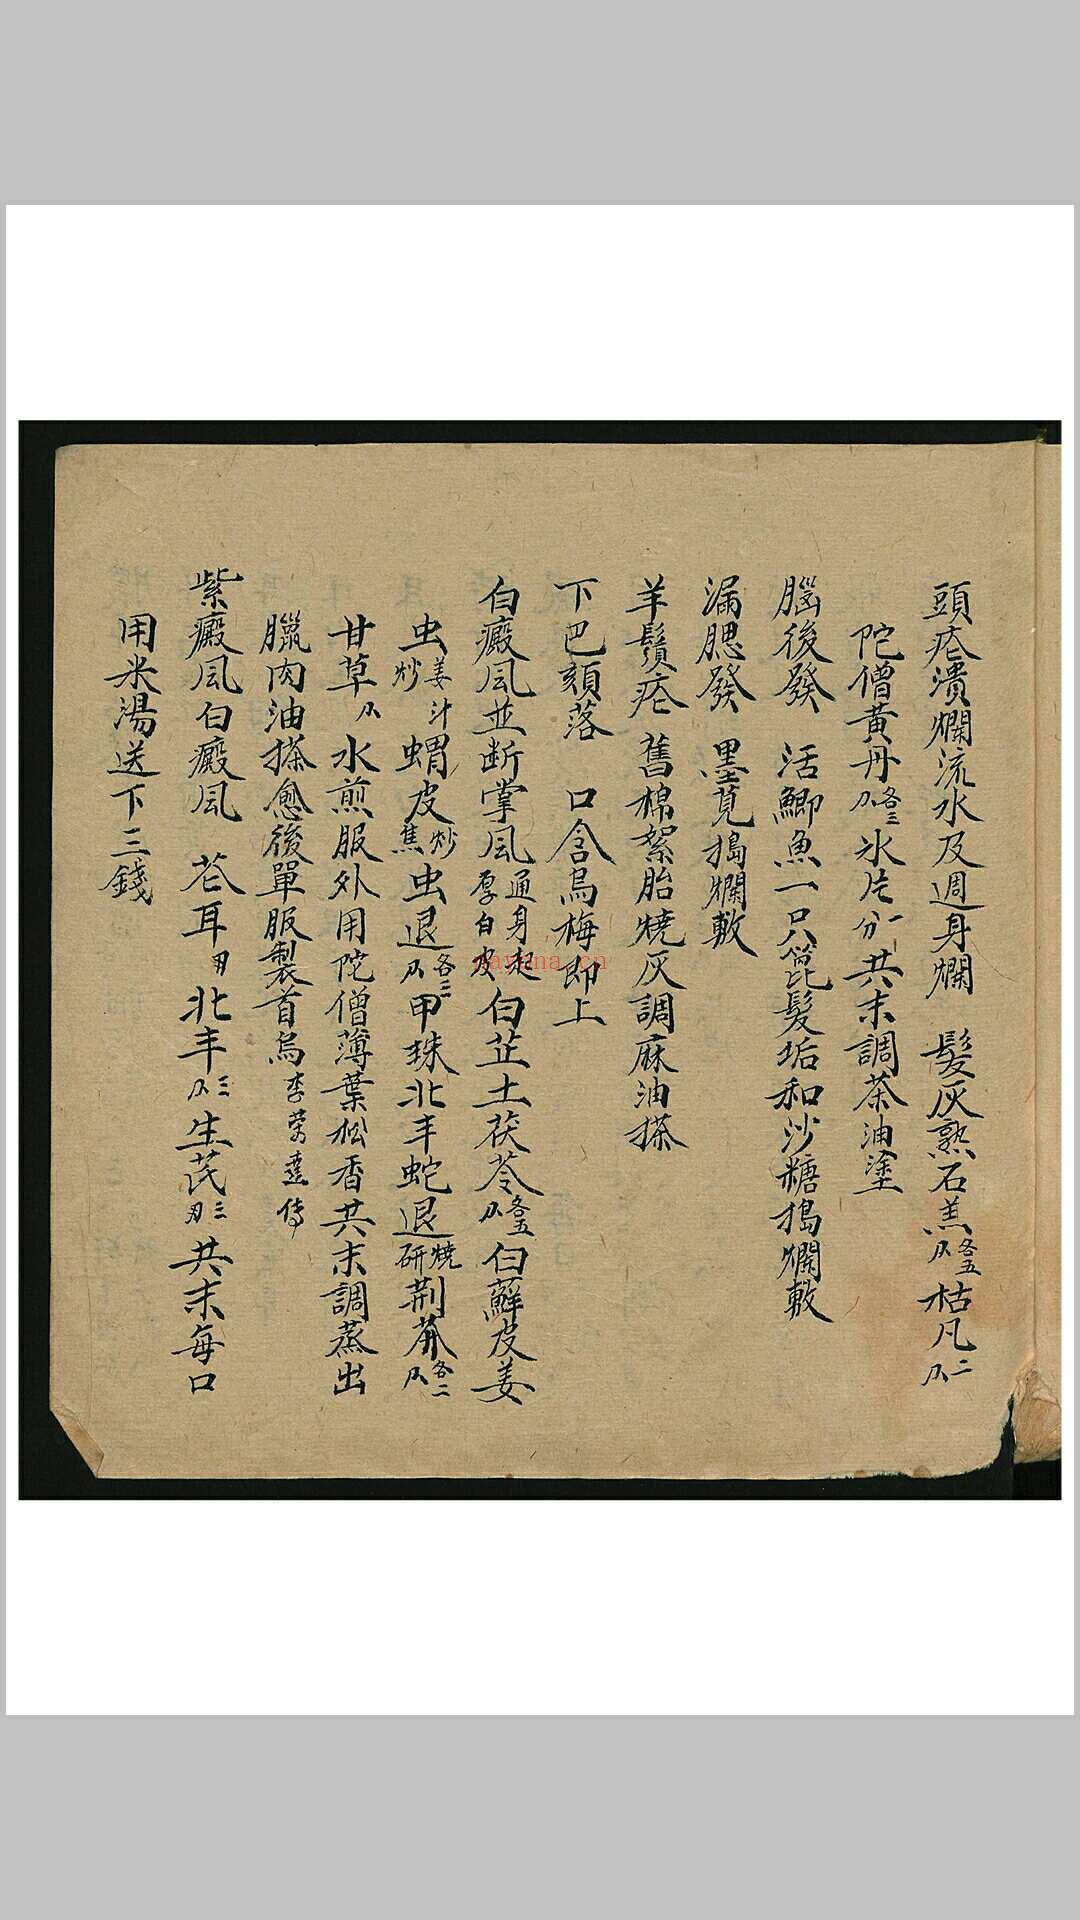 頭疮潰爛流水及週身爛　髮灰熟石羔各五𠆤枯凡二𠆤
陀僧黃丹各三𠆤氷片一分共末調茶油塗
腦後發　活鯽魚一只篦髮垢和沙糖搗爛敷
漏腮發　墨莧搗爛敷
羊鬚疮　舊棉絮胎燒灰調麻油搽
下巴頦落　口含烏梅即上
白癜風並断掌風通身走厚白皮白芷土茯苓各五白蘚皮姜
虫姜汁炒蝟皮炒焦虫退各三甲珠北丰蛇退燒研荆芥各二
甘草水煎服外用陀僧薄葉松香共末調蒸出
臘肉油搽愈後單服製首烏李荣達傳
紫癜風白癜風　苍耳北丰三生芪三共末每口
用米湯送下三錢